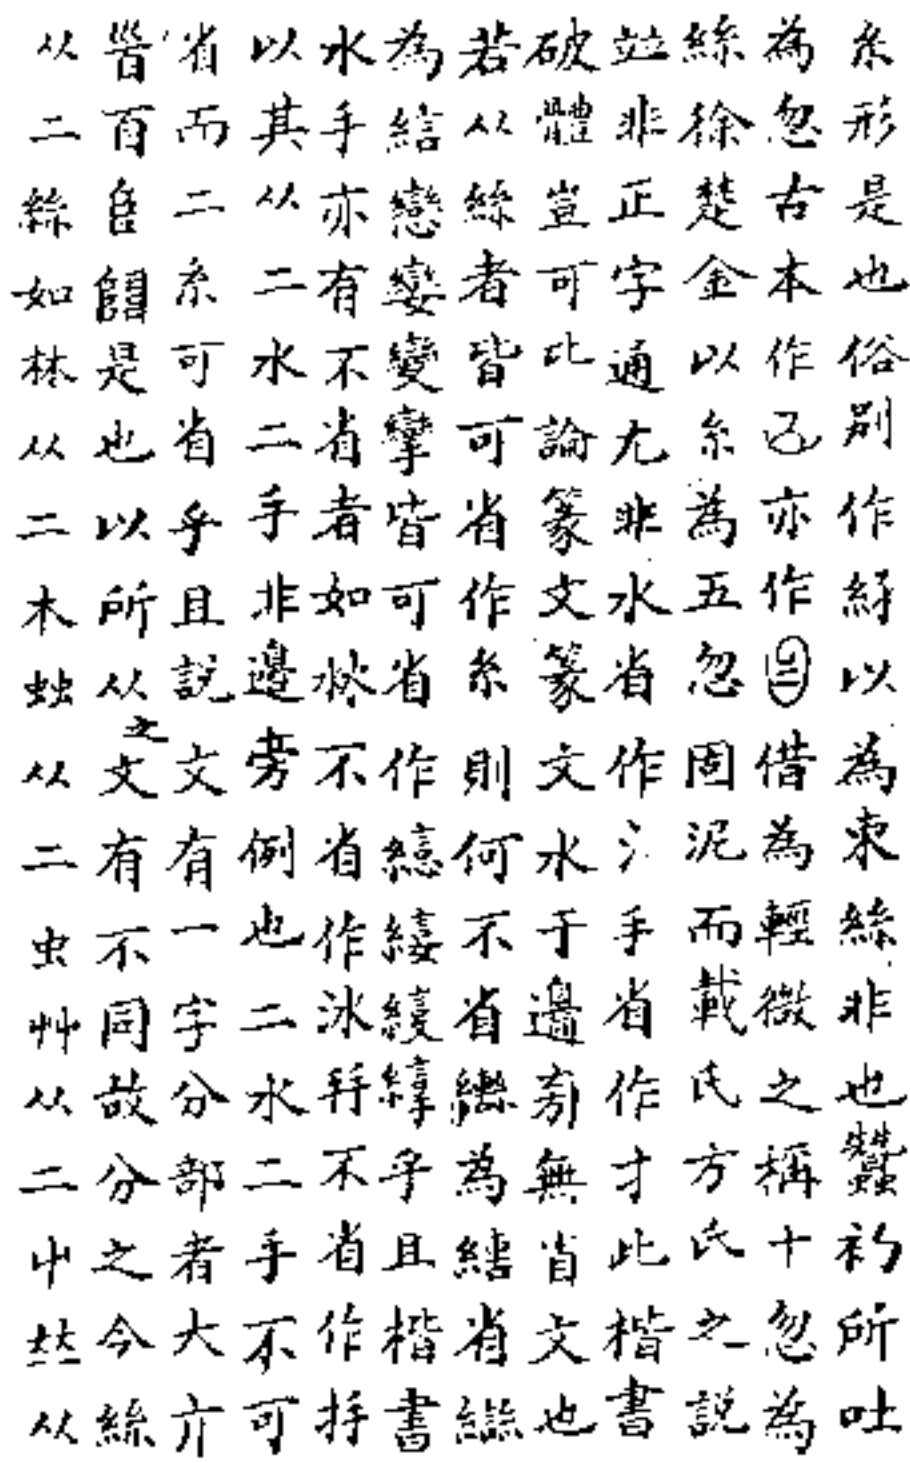 糸形是也俗别作紓以為束絲非也蠶初所吐
為忽古本作己亦作借為輕微之稱十忽為
絲徐楚金以糸為五忽固泥而載氏方氏之說
並非正字通尢非水省作氵手省作才此楷書
破體豈可比論篆文篆文水于邊旁無省文也
若从絲者皆可省作糸則何不省為省
為結戀孌變攣皆可省作乎且楷書
水手亦有不省者如不省作冰不省作拜
以其从二水二手非邊旁例也二水二手不可
省而二糸可省乎且說文有一字分部者大亣
百是也以所从之文有不同故分之今絲
从二絲如林从二木䖵从二虫艸从二屮从